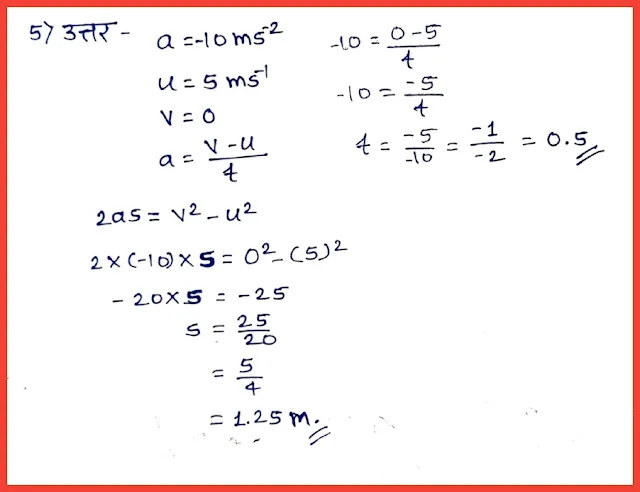 5) उत्तर - a = -10 ms⁻²
u = 5 ms⁻¹
v = 0
a = (v - u)/t
-10 = (0 - 5)/t
-10 = -5/t
t = -5/-10 = -1/-2 = 0.5
2as = v² - u²
2 × (-10) × s = 0² - (5)²
- 20 × s = -25
s = 25/20
= 5/4
= 1.25 m.